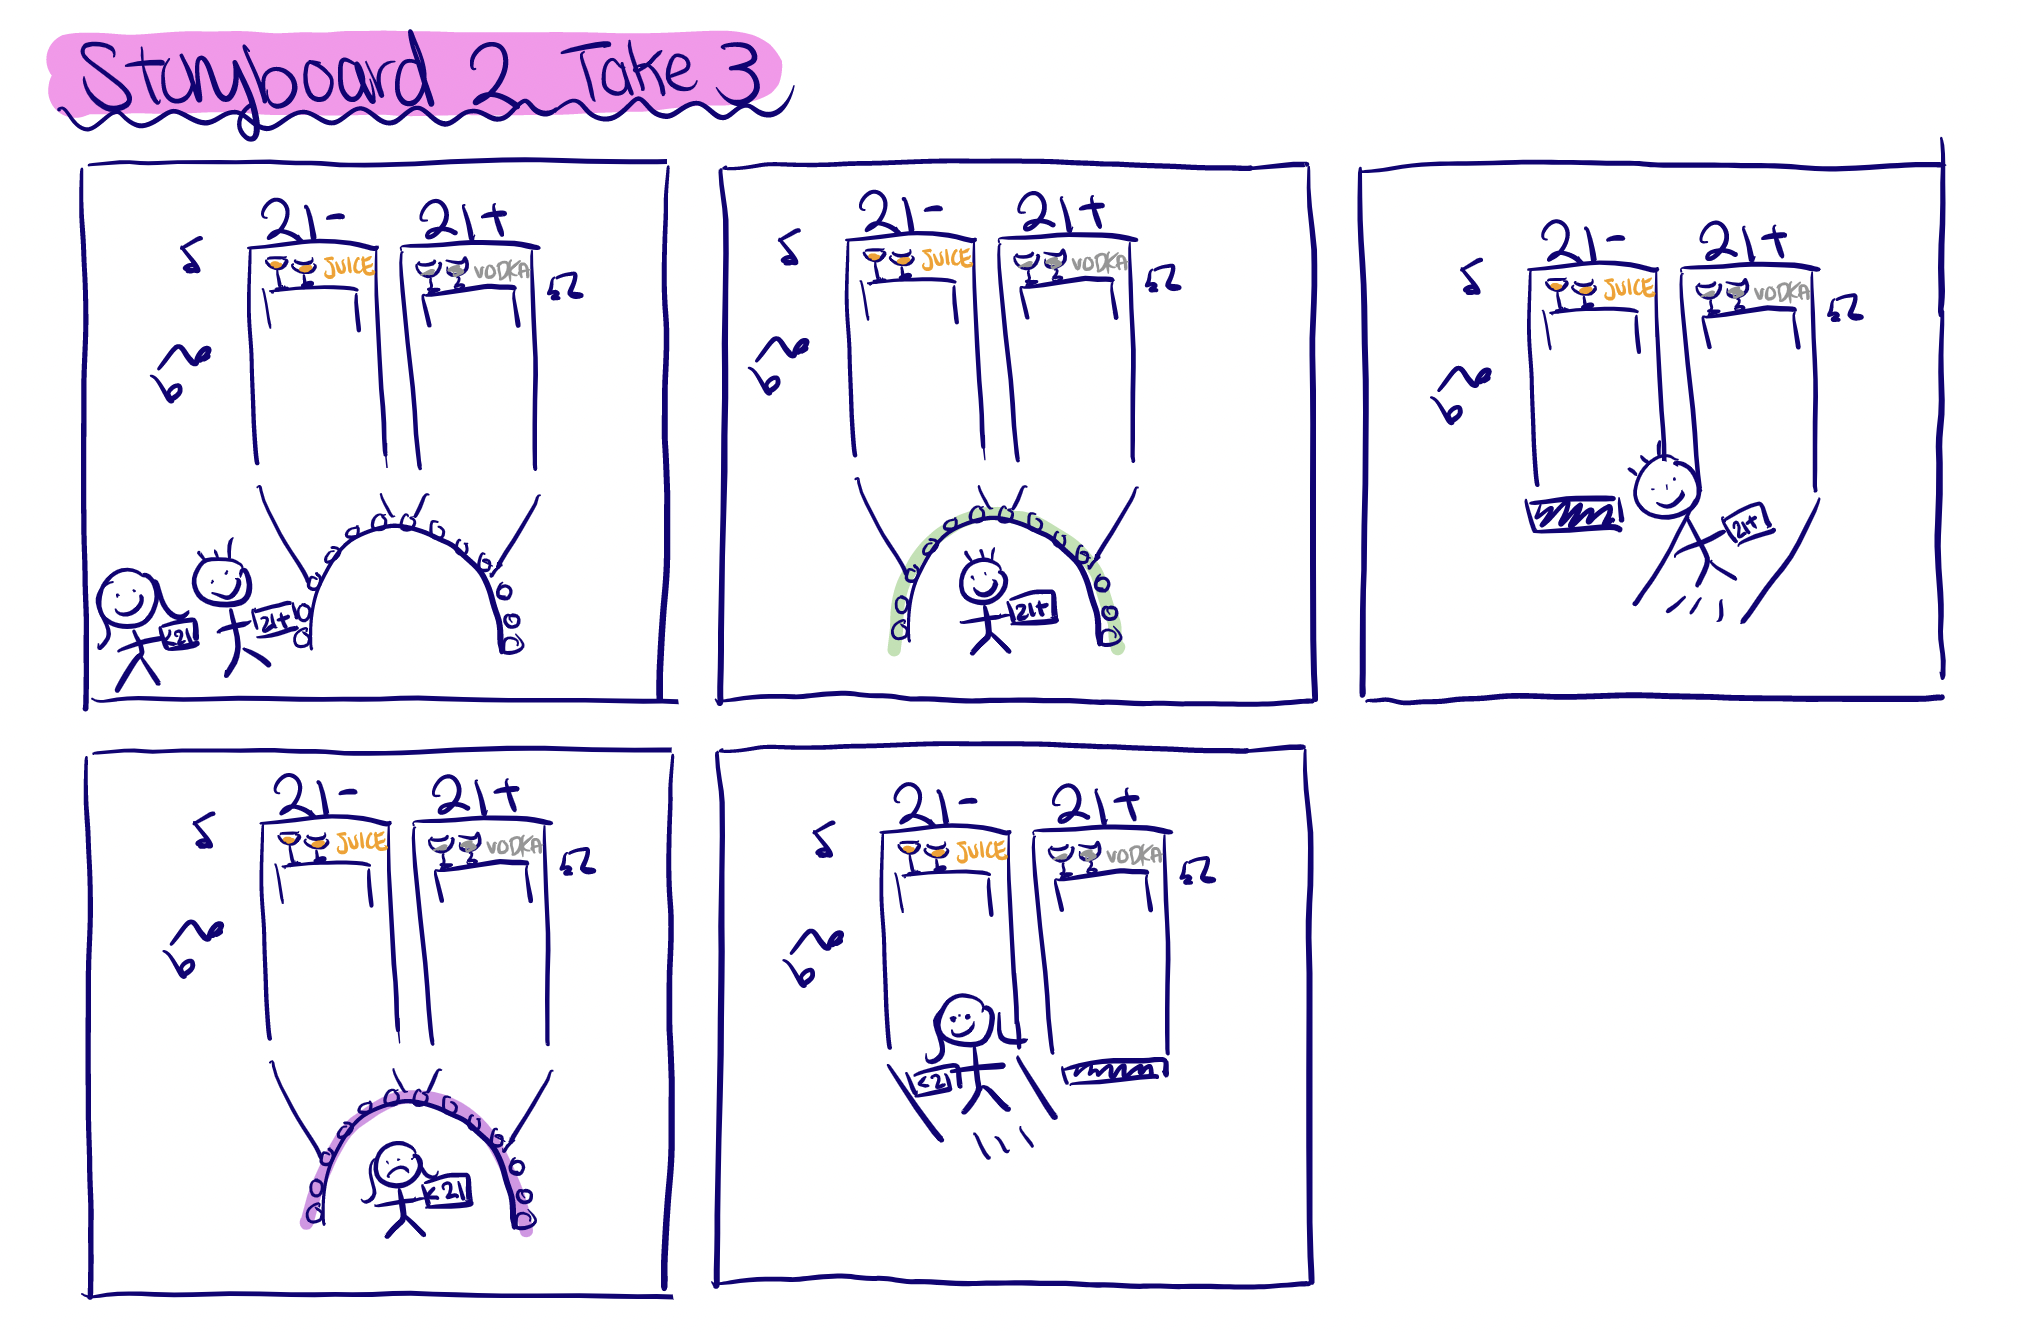 Storyboard 2 Take 3
21- 21+
JUICE VODKA
<21 21+
21- 21+
JUICE VODKA
21+
21- 21+
JUICE VODKA
21+
21- 21+
JUICE VODKA
<21
21- 21+
JUICE VODKA
<21